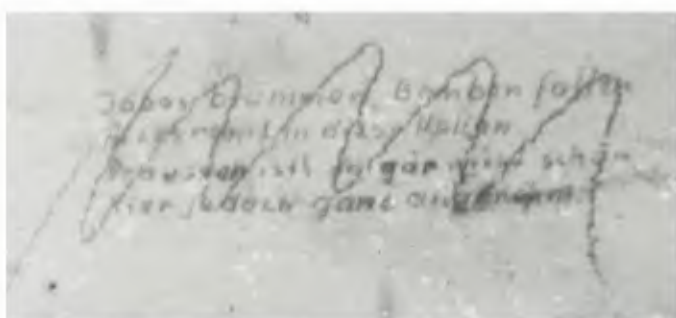 Jabos brummen, Bomben fallen
rennt in diese Hallen
Draussen ists ja gar nicht schön
Hier jedoch ganz angenehm.